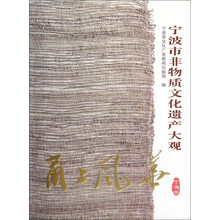 宁波市非物质文化遗产大观
宁波市文化广电新闻出版局 编
甬上风华